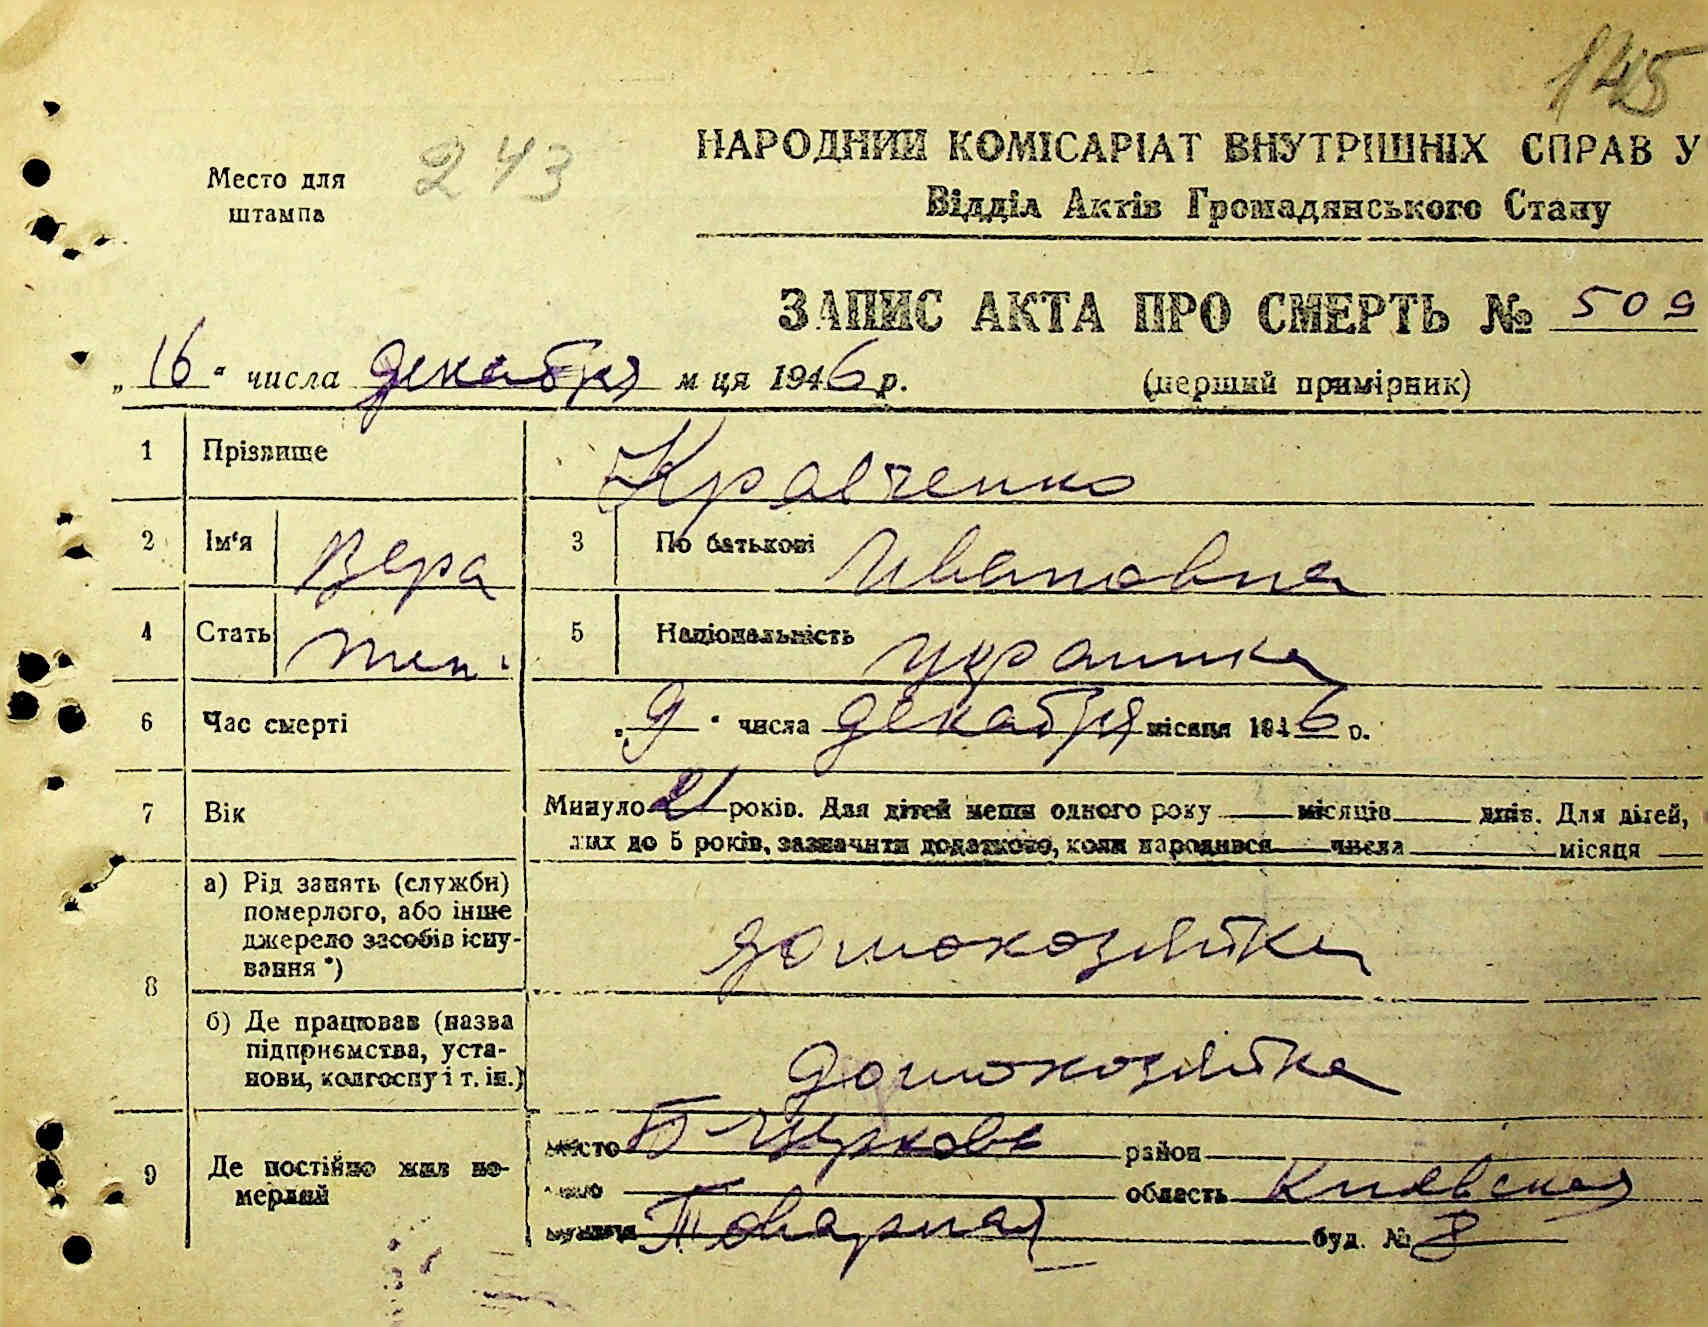 145
243
Место для
штампа
НАРОДНИЙ КОМІСАРІАТ ВНУТРІШНІХ СПРАВ У
Відділ Актів Громадянського Стану
ЗАПИС АКТА ПРО СМЕРТЬ № 509
„16“ числа декабря м ця 1946 р. (перший примірник)
1 Прізвище Кравченко
2 Ім'я Вера 3 По батькові Ивановна
4 Стать жен. 5 Національність украинка
6 Час смерті „9“ числа декабря місяця 1946 р.
7 Вік Минуло 21 років. Для дітей менш одного року місяців днів. Для дітей,
лих до 5 років, зазначити додатково, коли народився числа місяця
8 а) Рід занять (служби)
померлого, або інше
джерело засобів існу-
вання *) домохозяйка
б) Де працював (назва
підприємства, уста-
нови, колгоспу і т. ін.) домохозяйка
9 Де постійно жив по-
мерлий
місто Б-Церковь район
область Киевская
вулиця Товарная буд. № 8